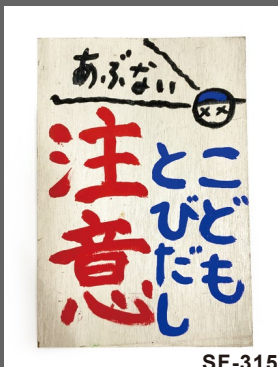 あぶない
こども
とびだし
注意
SF-315